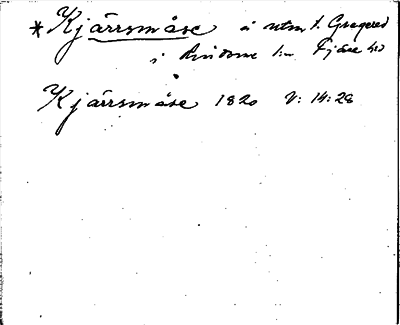 * Kjärrsmåse å utm t. Gregered
i Lindome sn Fjäre hd
Kjärrsmåse 1820 V: 14:28